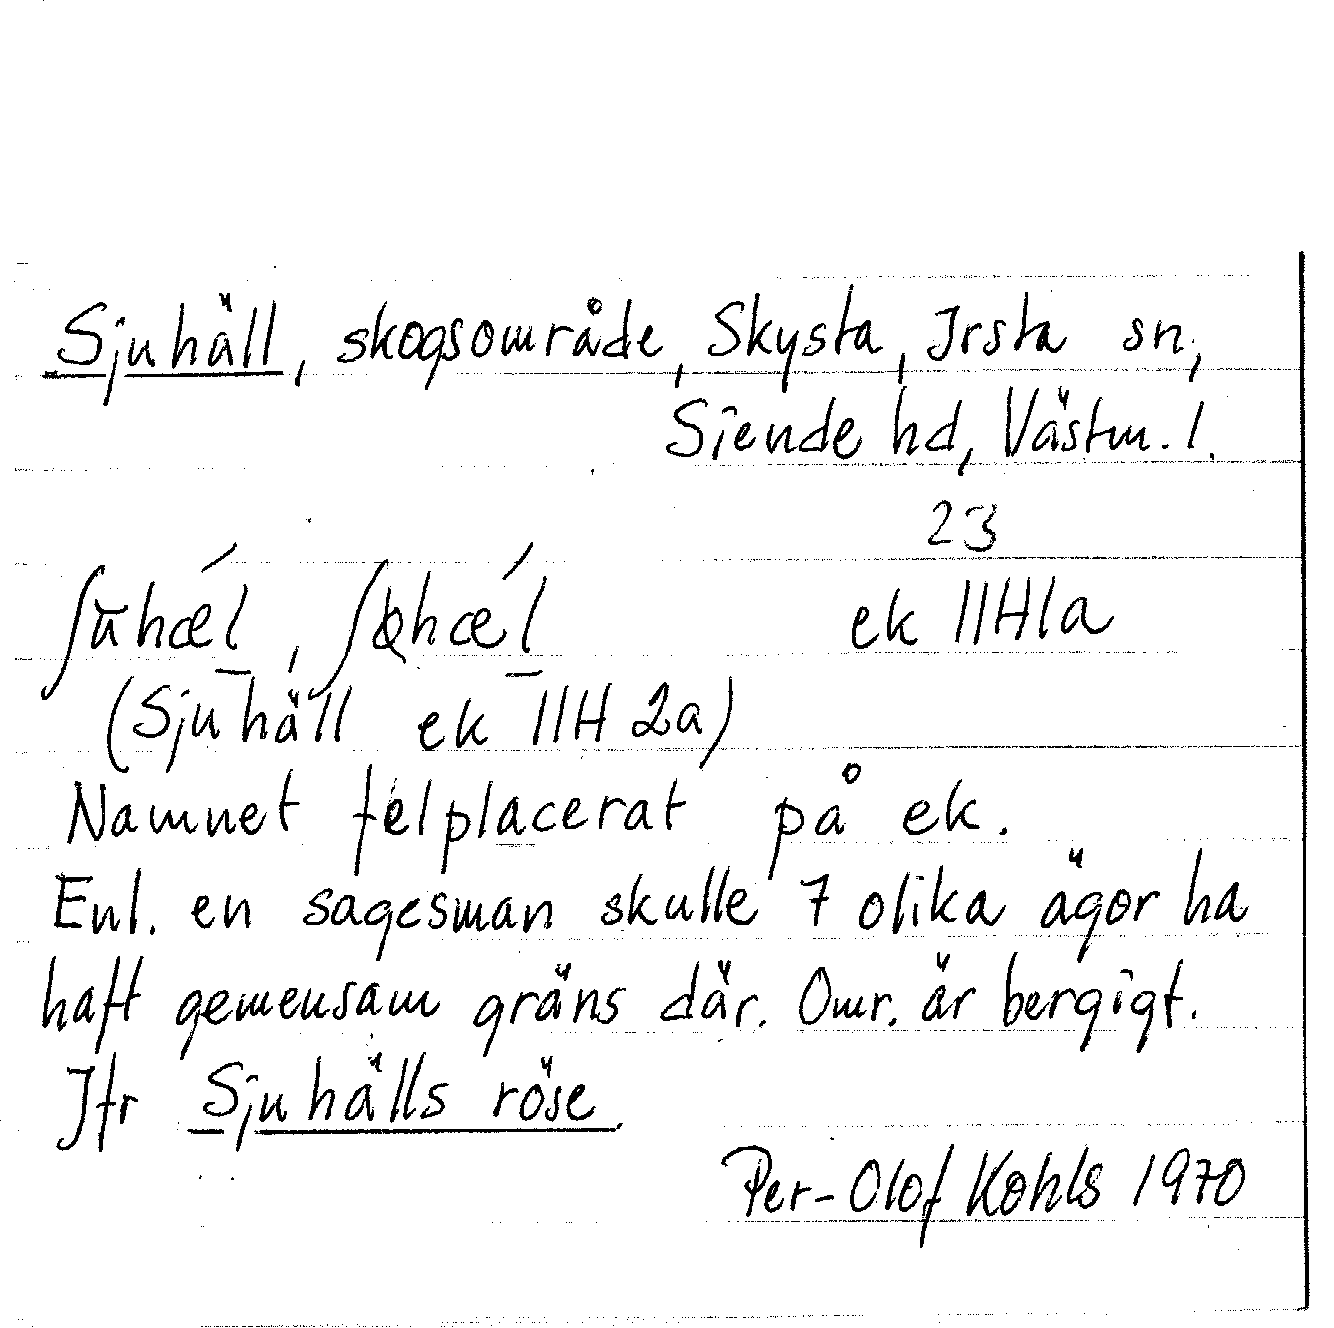 Sjuhäll, skogsområde, Skysta, Irsta sn,
Siende hd, Västm. l.
23
ek 11H1a
(Sjuhäll ek 11H 2a)
Namnet felplacerat på ek.
Enl. en sagesman skulle 7 olika ägor ha
haft gemensam gräns där. Omr. är bergigt.
Jfr Sjuhälls röse.
Per-Olof Kohls 1970